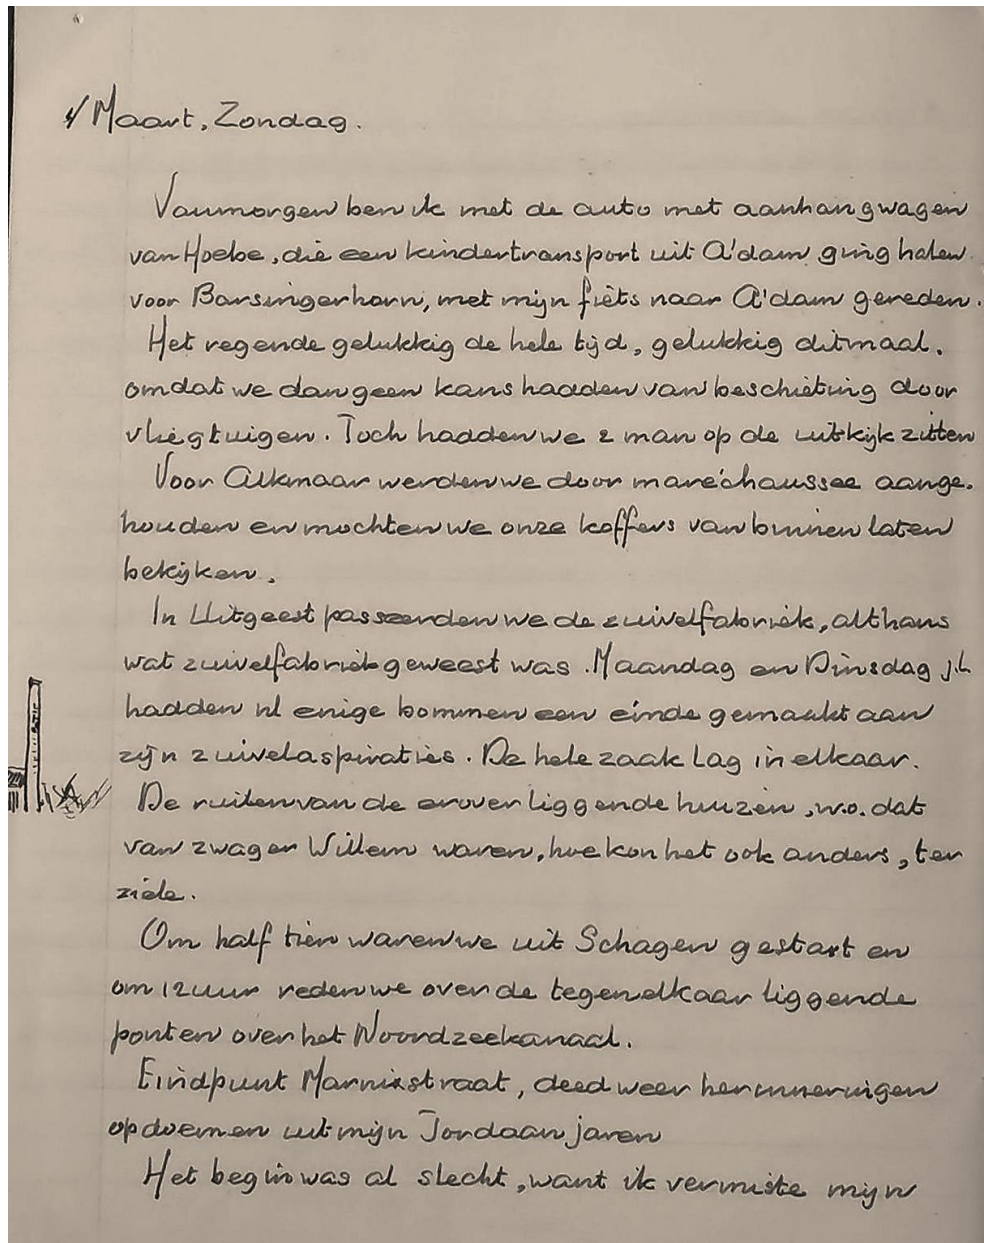 4 Maart, Zondag.
Vanmorgen ben ik met de auto met aanhangwagen
van Hoebe, die een kindertransport uit A'dam ging halen
voor Barsingerhorn, met mijn fiets naar A'dam gereden.
Het regende gelukkig de hele tijd, gelukkig ditmaal,
omdat we dan geen kans hadden van beschieting door
vliegtuigen. Toch hadden we 2 man op de uitkijk zitten
Voor Alkmaar werden we door maréchaussee aange-
houden en mochten we onze koffers van binnen laten
bekijken.
In Uitgeest passeerden we de zuivelfabriek, althans
wat zuivelfabriek geweest was. Maandag en Dinsdag j.l.
hadden nl enige bommen een einde gemaakt aan
zijn zuivelaspiraties. De hele zaak lag in elkaar.
De ruiten van de erover liggende huizen, w.o. dat
van zwager Willem waren, hoe kon het ook anders, ter
ziele.
Om half tien waren we uit Schagen gestart en
om 12 uur reden we over de tegen elkaar liggende
ponten over het Noordzeekanaal.
Eindpunt Marnixstraat, deed weer herinneringen
opdoemen uit mijn Jordaan jaren
Het begin was al slecht, want ik vermiste mijn